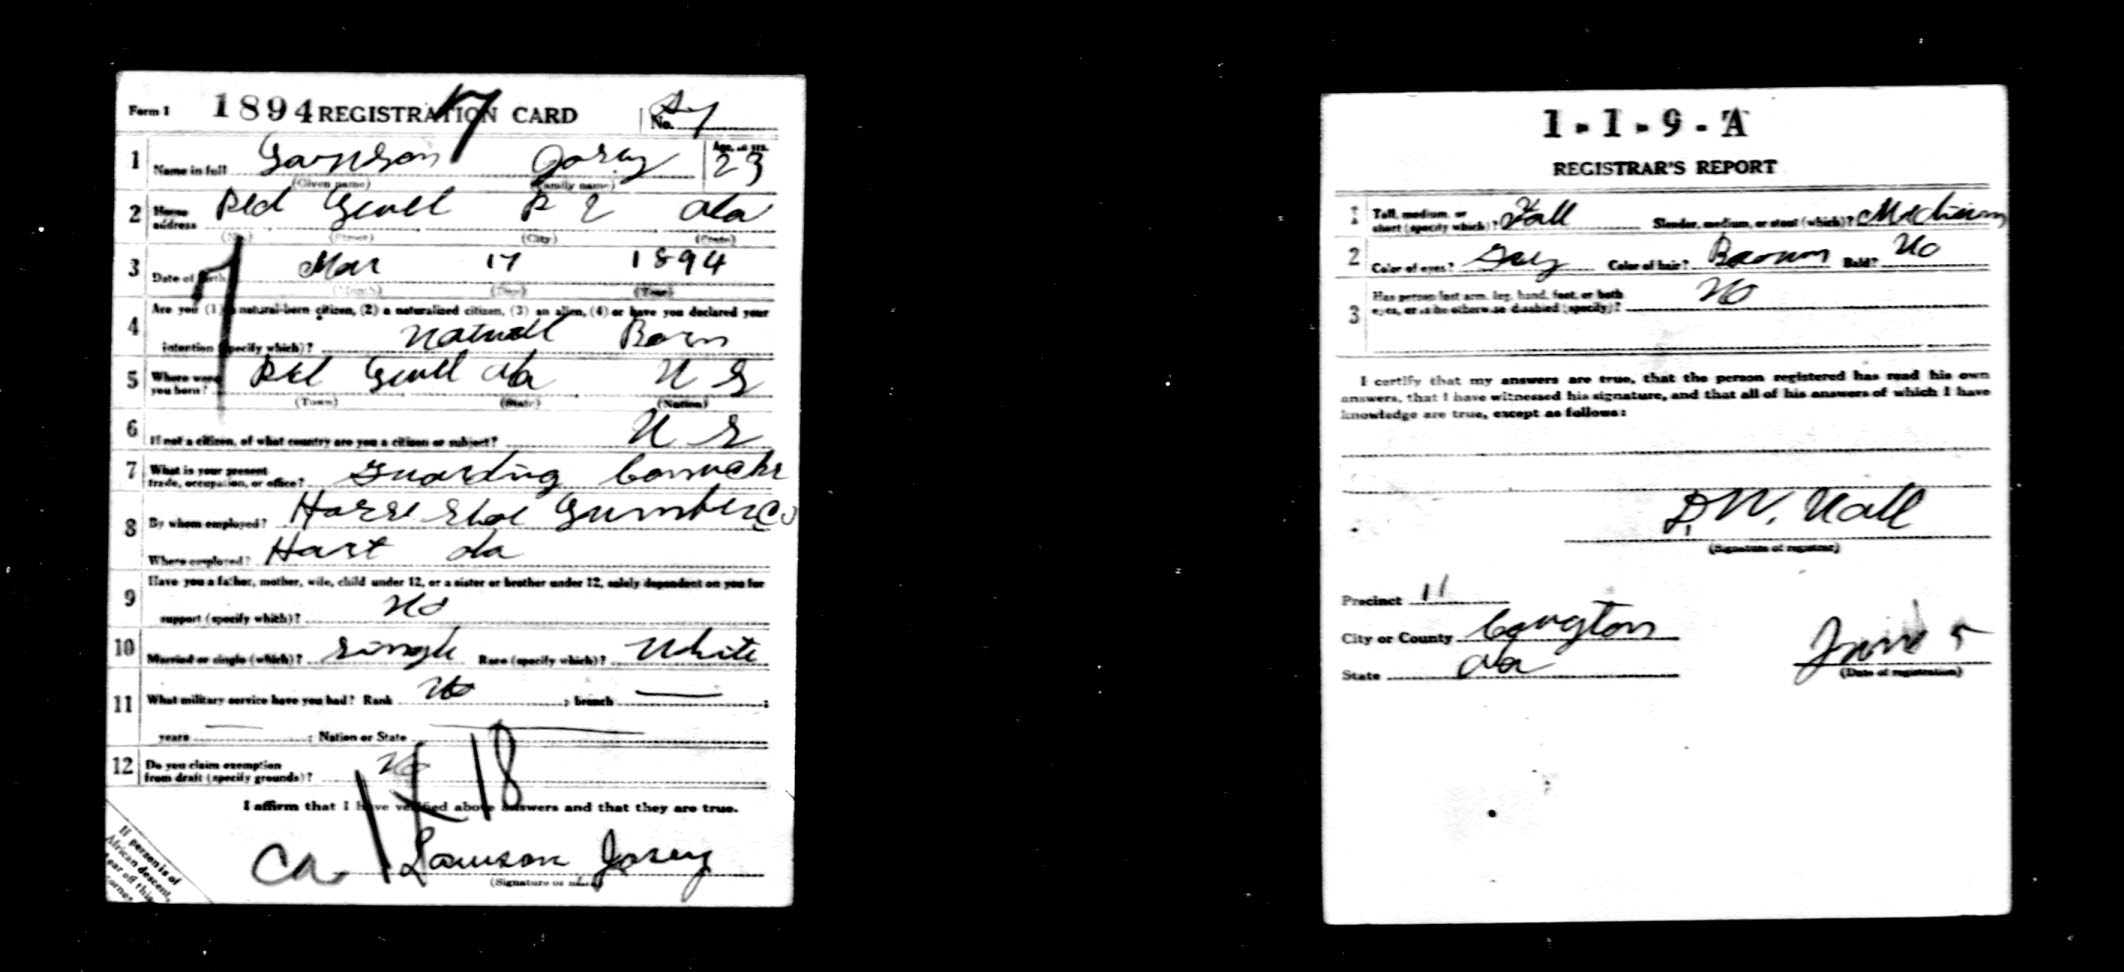 Form 1 1894 REGISTRATION CARD No. 27
17
1 Name in full Lawson Josey Age, in yrs. 23
(Given name) (Family name)
2 Home address Red Level R 2 Ala
(No.) (Street) (City) (State)
3 Date of birth Mar 17 1894
(Month) (Day) (Year)
4 Are you (1) a natural-born citizen, (2) a naturalized citizen, (3) an alien, (4) or have you declared your
intention (specify which)? Natural Born
5 Where were you born? Red Level Ala U S
(Town) (State) (Nation)
6 If not a citizen, of what country are you a citizen or subject? U S
7 What is your present trade, occupation, or office? Guarding Convicts
8 By whom employed? Horse Shoe Lumber Co
Where employed? Hart Ala
9 Have you a father, mother, wife, child under 12, or a sister or brother under 12, solely dependent on you for
support (specify which)? No
10 Married or single (which)? Single Race (specify which)? White
11 What military service have you had? Rank No ; branch ;
years ; Nation or State
12 Do you claim exemption from draft (specify grounds)? No
I affirm that I have verified above answers and that they are true.
Lawson Josey
(Signature or mark)
If person is of
African descent,
tear off this
corner
1-1-9-A
REGISTRAR'S REPORT
1 Tall, medium, or short (specify which)? Tall Slender, medium, or stout (which)? Medium
2 Color of eyes? Grey Color of hair? Brown Bald? No
3 Has person lost arm, leg, hand, foot, or both eyes, or is he otherwise disabled (specify)? No
I certify that my answers are true, that the person registered has read his own
answers, that I have witnessed his signature, and that all of his answers of which I have
knowledge are true, except as follows:
D.W. Nall
(Signature of registrar)
Precinct 11
City or County Covington
State Ala
June 5
(Date of registration)